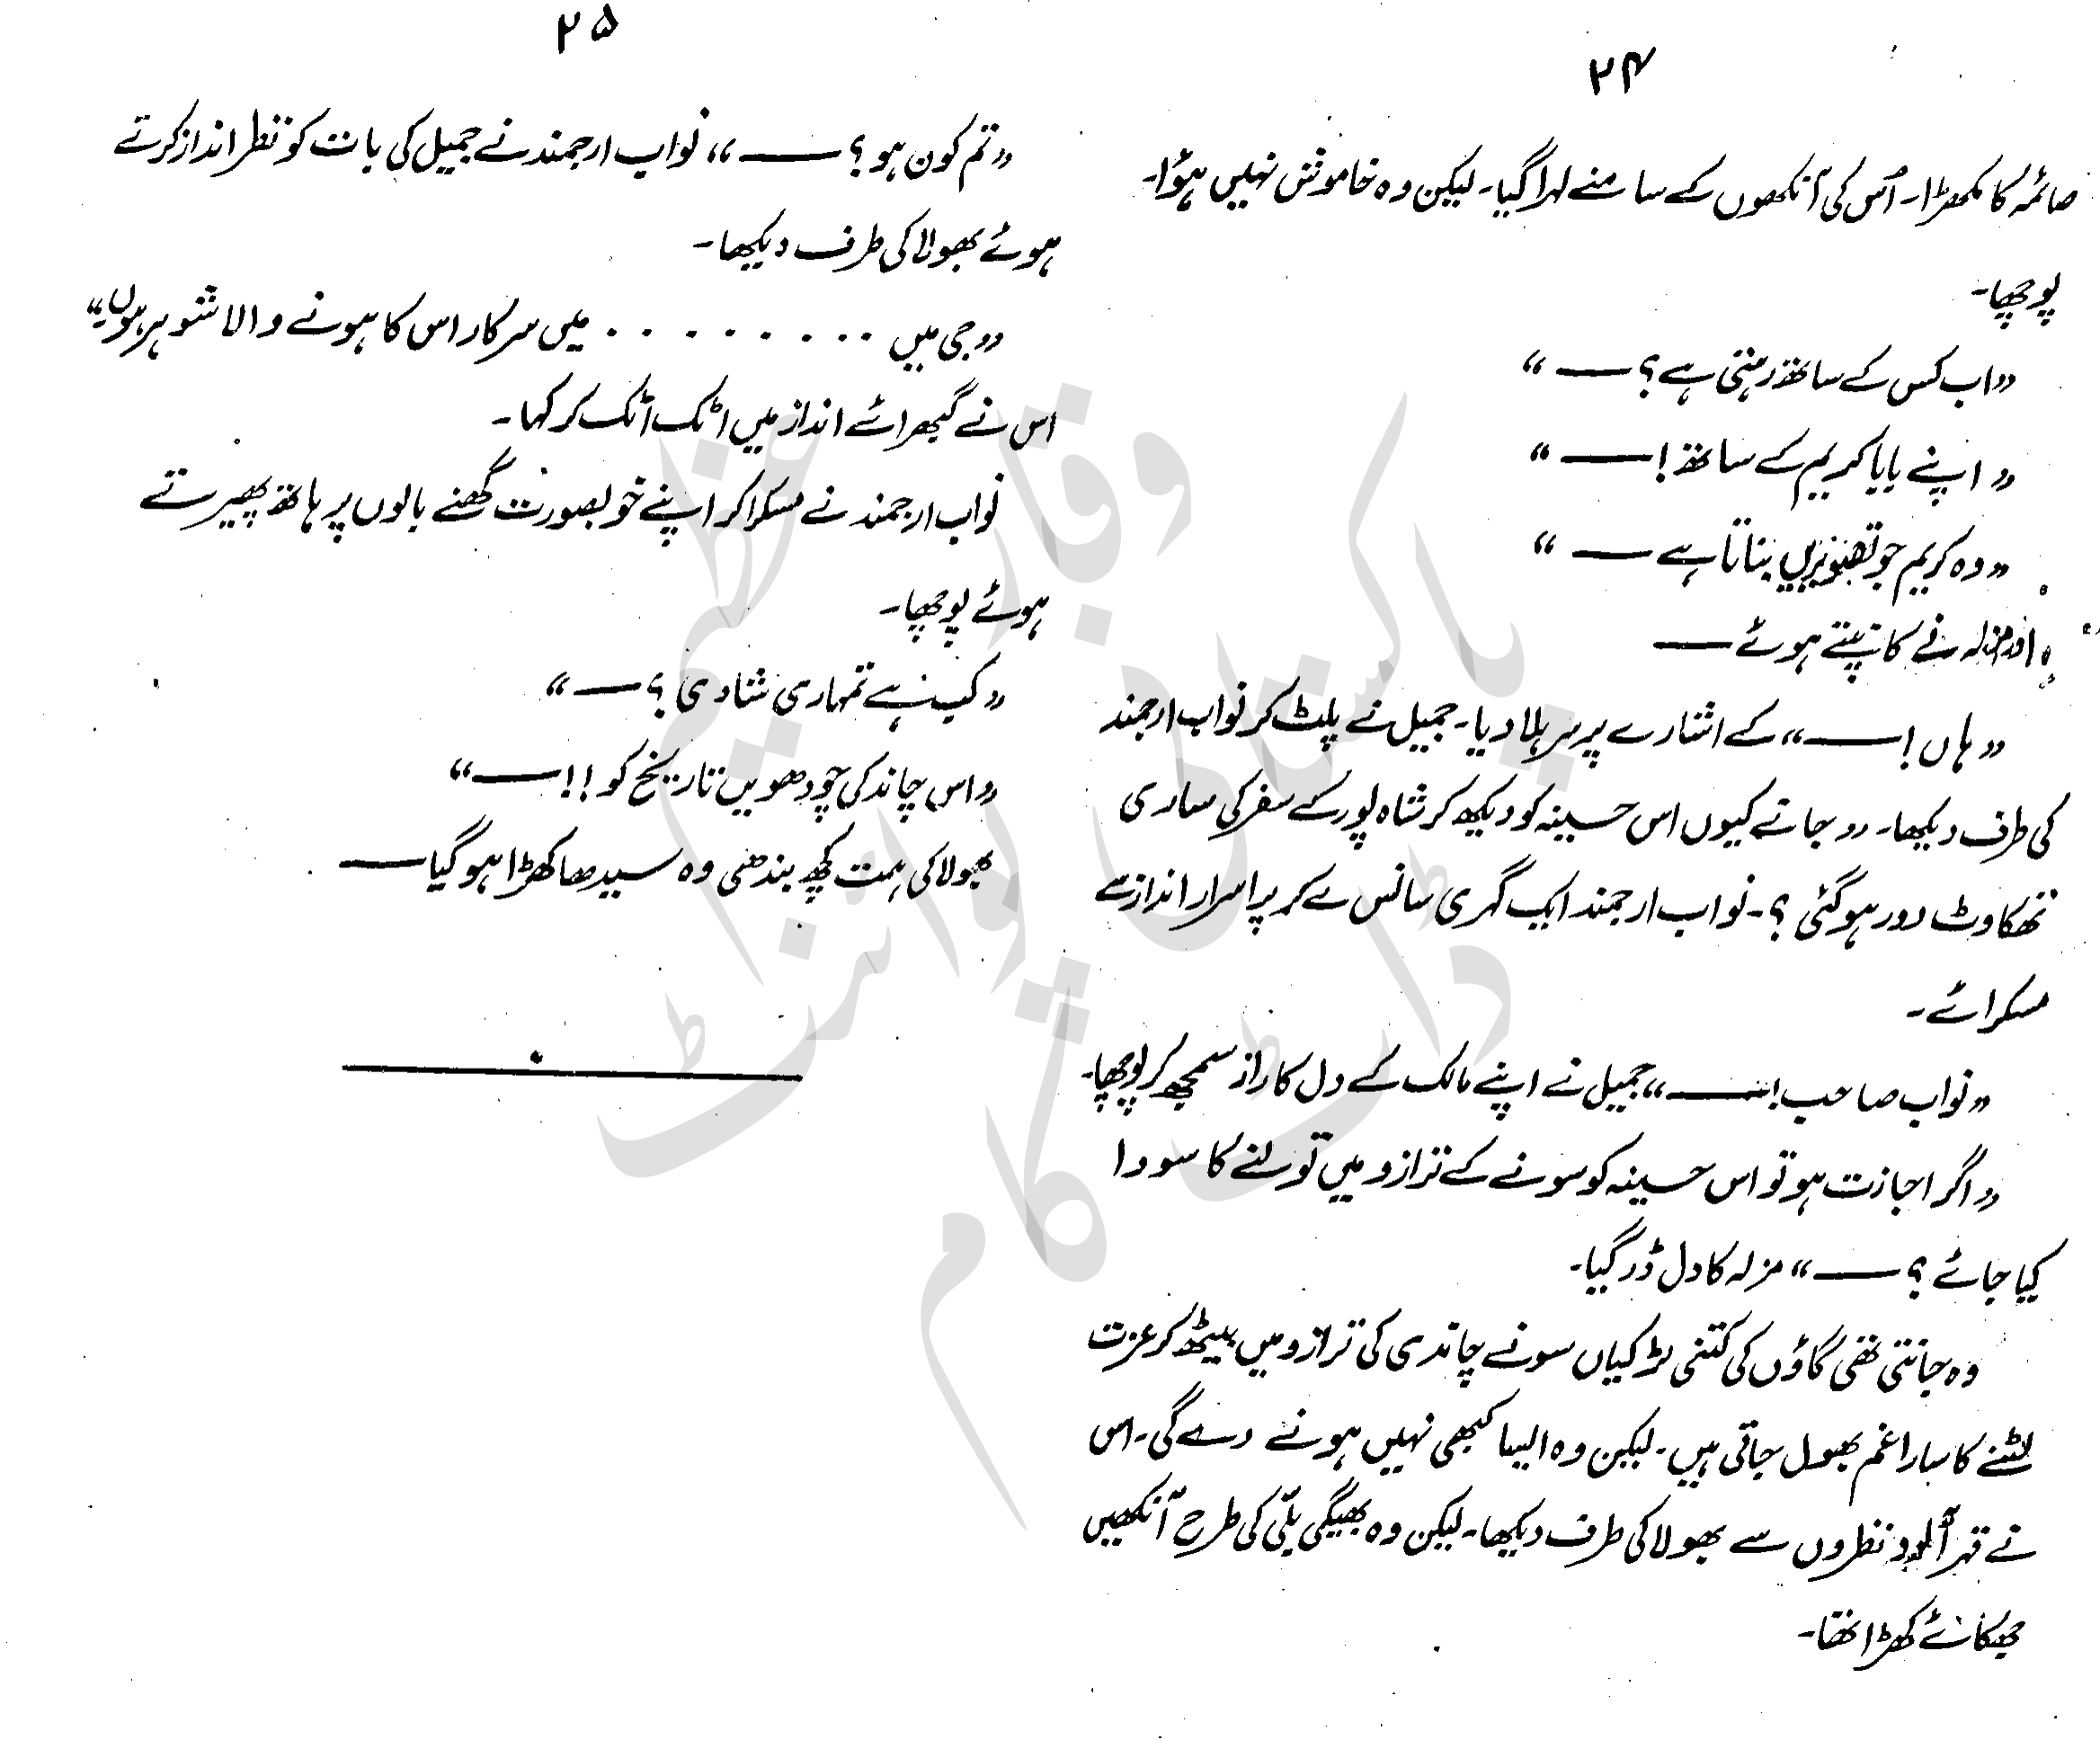 ۲۴
صائمہ کا مکھڑا۔ اُس کی آنکھوں کے سامنے لہرا گیا۔ لیکن وہ خاموش نہیں ہؤا۔
پوچھا۔
"اب کس کے ساتھ رہتی ہے؟ —"
"اپنے بابا کریم کے ساتھ! —"
"وہ کریم جو تھبنویریں بناتا ہے —"
اور مزلہ نے کانپتے ہوئے —
"ہاں! —" کے اشارے پر سر ہلا دیا۔ جمیل نے پلٹ کر نواب ارجمند
کی طرف دیکھا۔ "جانے کیوں اس حسینہ کو دیکھ کر شاہ پور کے سفر کی ساری
تھکاوٹ دور ہو گئی؟۔ نواب ارجمند ایک گہری سانس لے کر پراسرار انداز سے
مسکرائے۔
"نواب صاحب! —" جمیل نے اپنے مالک کے دل کا راز سمجھ کر پوچھا۔
"اگر اجازت ہو تو اس حسینہ کو سونے کے ترازو میں تولنے کا سودا
کیا جائے؟ —" مزلہ کا دل ڈر گیا۔
وہ جانتی تھی گاؤں کی کتنی لڑکیاں سونے چاندی کی ترازو میں بیٹھ کر عزت
لٹنے کا سارا غم بھول جاتی ہیں۔ لیکن وہ ایسا کبھی نہیں ہونے دے گی۔ اس
نے قہر آلود نظروں سے بھولا کی طرف دیکھا۔ لیکن وہ بھیگی بلّی کی طرح آنکھیں
جھکائے کھڑا تھا۔
۲۵
"تم کون ہو؟ —" نواب ارجمند نے جمیل کی بات کو نظر انداز کرتے
ہوئے بھولا کی طرف دیکھا۔
"جی میں . . . . . . . . . میں سرکار اس کا ہونے والا شوہر ہوں۔"
اس نے گبھرائے انداز میں اٹک اٹک کر کہا۔
نواب ارجمند نے مسکرا کر اپنے خوبصورت گھنے بالوں پر ہاتھ پھیرتے
ہوئے پوچھا۔
"کب ہے تمہاری شادی؟ —"
"اس چاند کی چودھویں تاریخ کو!! —"
بھولا کی ہمت کچھ بندھی وہ سیدھا کھڑا ہو گیا —
وقار عظیم
پاکستانی پوائنٹ
ڈاٹ کام